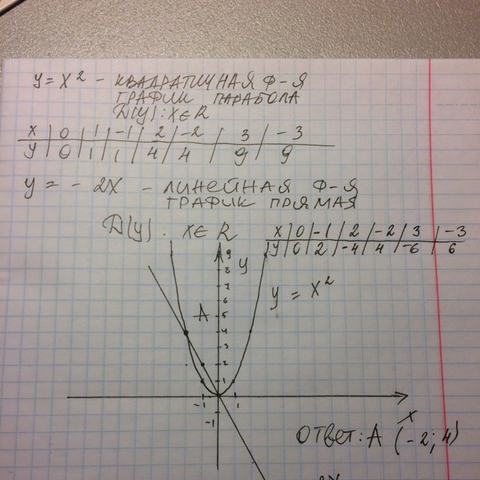 y = x² - КВАДРАТИЧНАЯ Ф-Я
ГРАФИК ПАРАБОЛА
D(y): x∈R
x | 0 | 1 | -1 | 2 | -2 | 3 | -3
y | 0 | 1 | 1 | 4 | 4 | 9 | 9
y = - 2x - ЛИНЕЙНАЯ Ф-Я
ГРАФИК ПРЯМАЯ
D(y): x∈R
x | 0 | -1 | 2 | -2 | 3 | -3
y | 0 | 2 | -4 | 4 | -6 | 6
y
9
8
7
6
5
4
3
2
1
-1
1
-1
A
y = x²
x
ОТВЕТ: A (-2; 4)